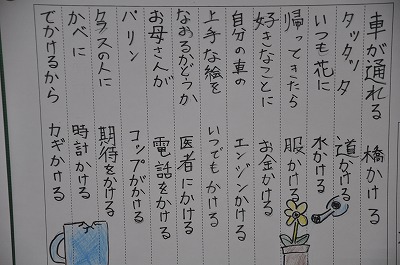 車が通れる　橋かける
タッタッタ　道かける
いつも花に　水かける
帰ってきたら　服かける
好きなことに　お金かける
自分の車の　エンジンかける
上手な絵を　いつでもかける
なおるかどうか　医者にかける
お母さんが　電話をかける
パリン　コップがかける
クラスの人に　期待をかける
かべに　時計かける
でかけるから　カギかける